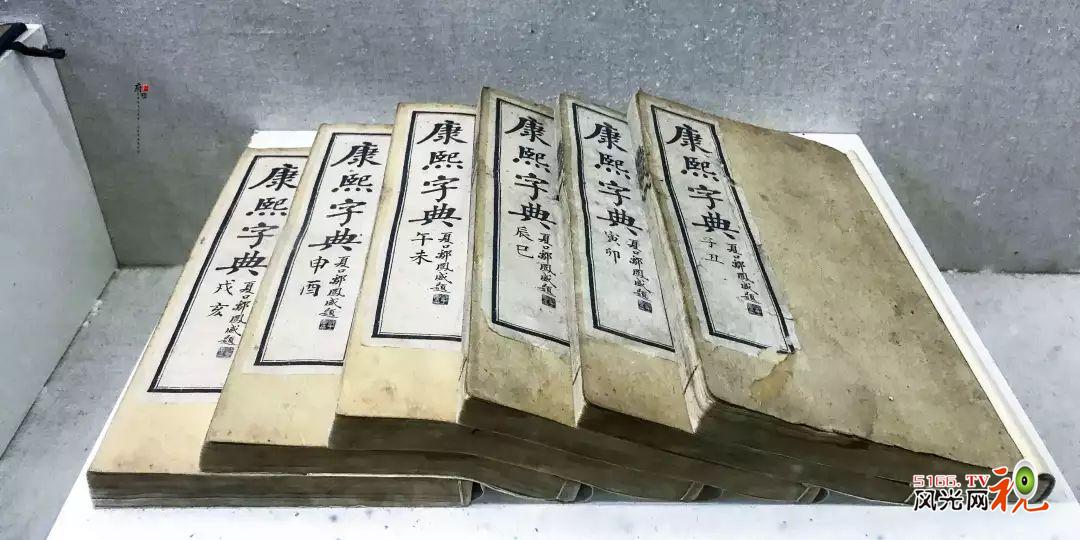 康熙字典
子丑
夏口
題
康熙字典
寅卯
夏口
題
康熙字典
辰巳
夏口
題
康熙字典
午未
夏口
題
康熙字典
申酉
夏口
題
康熙字典
戌亥
夏口
題
5166.TV
风光网视